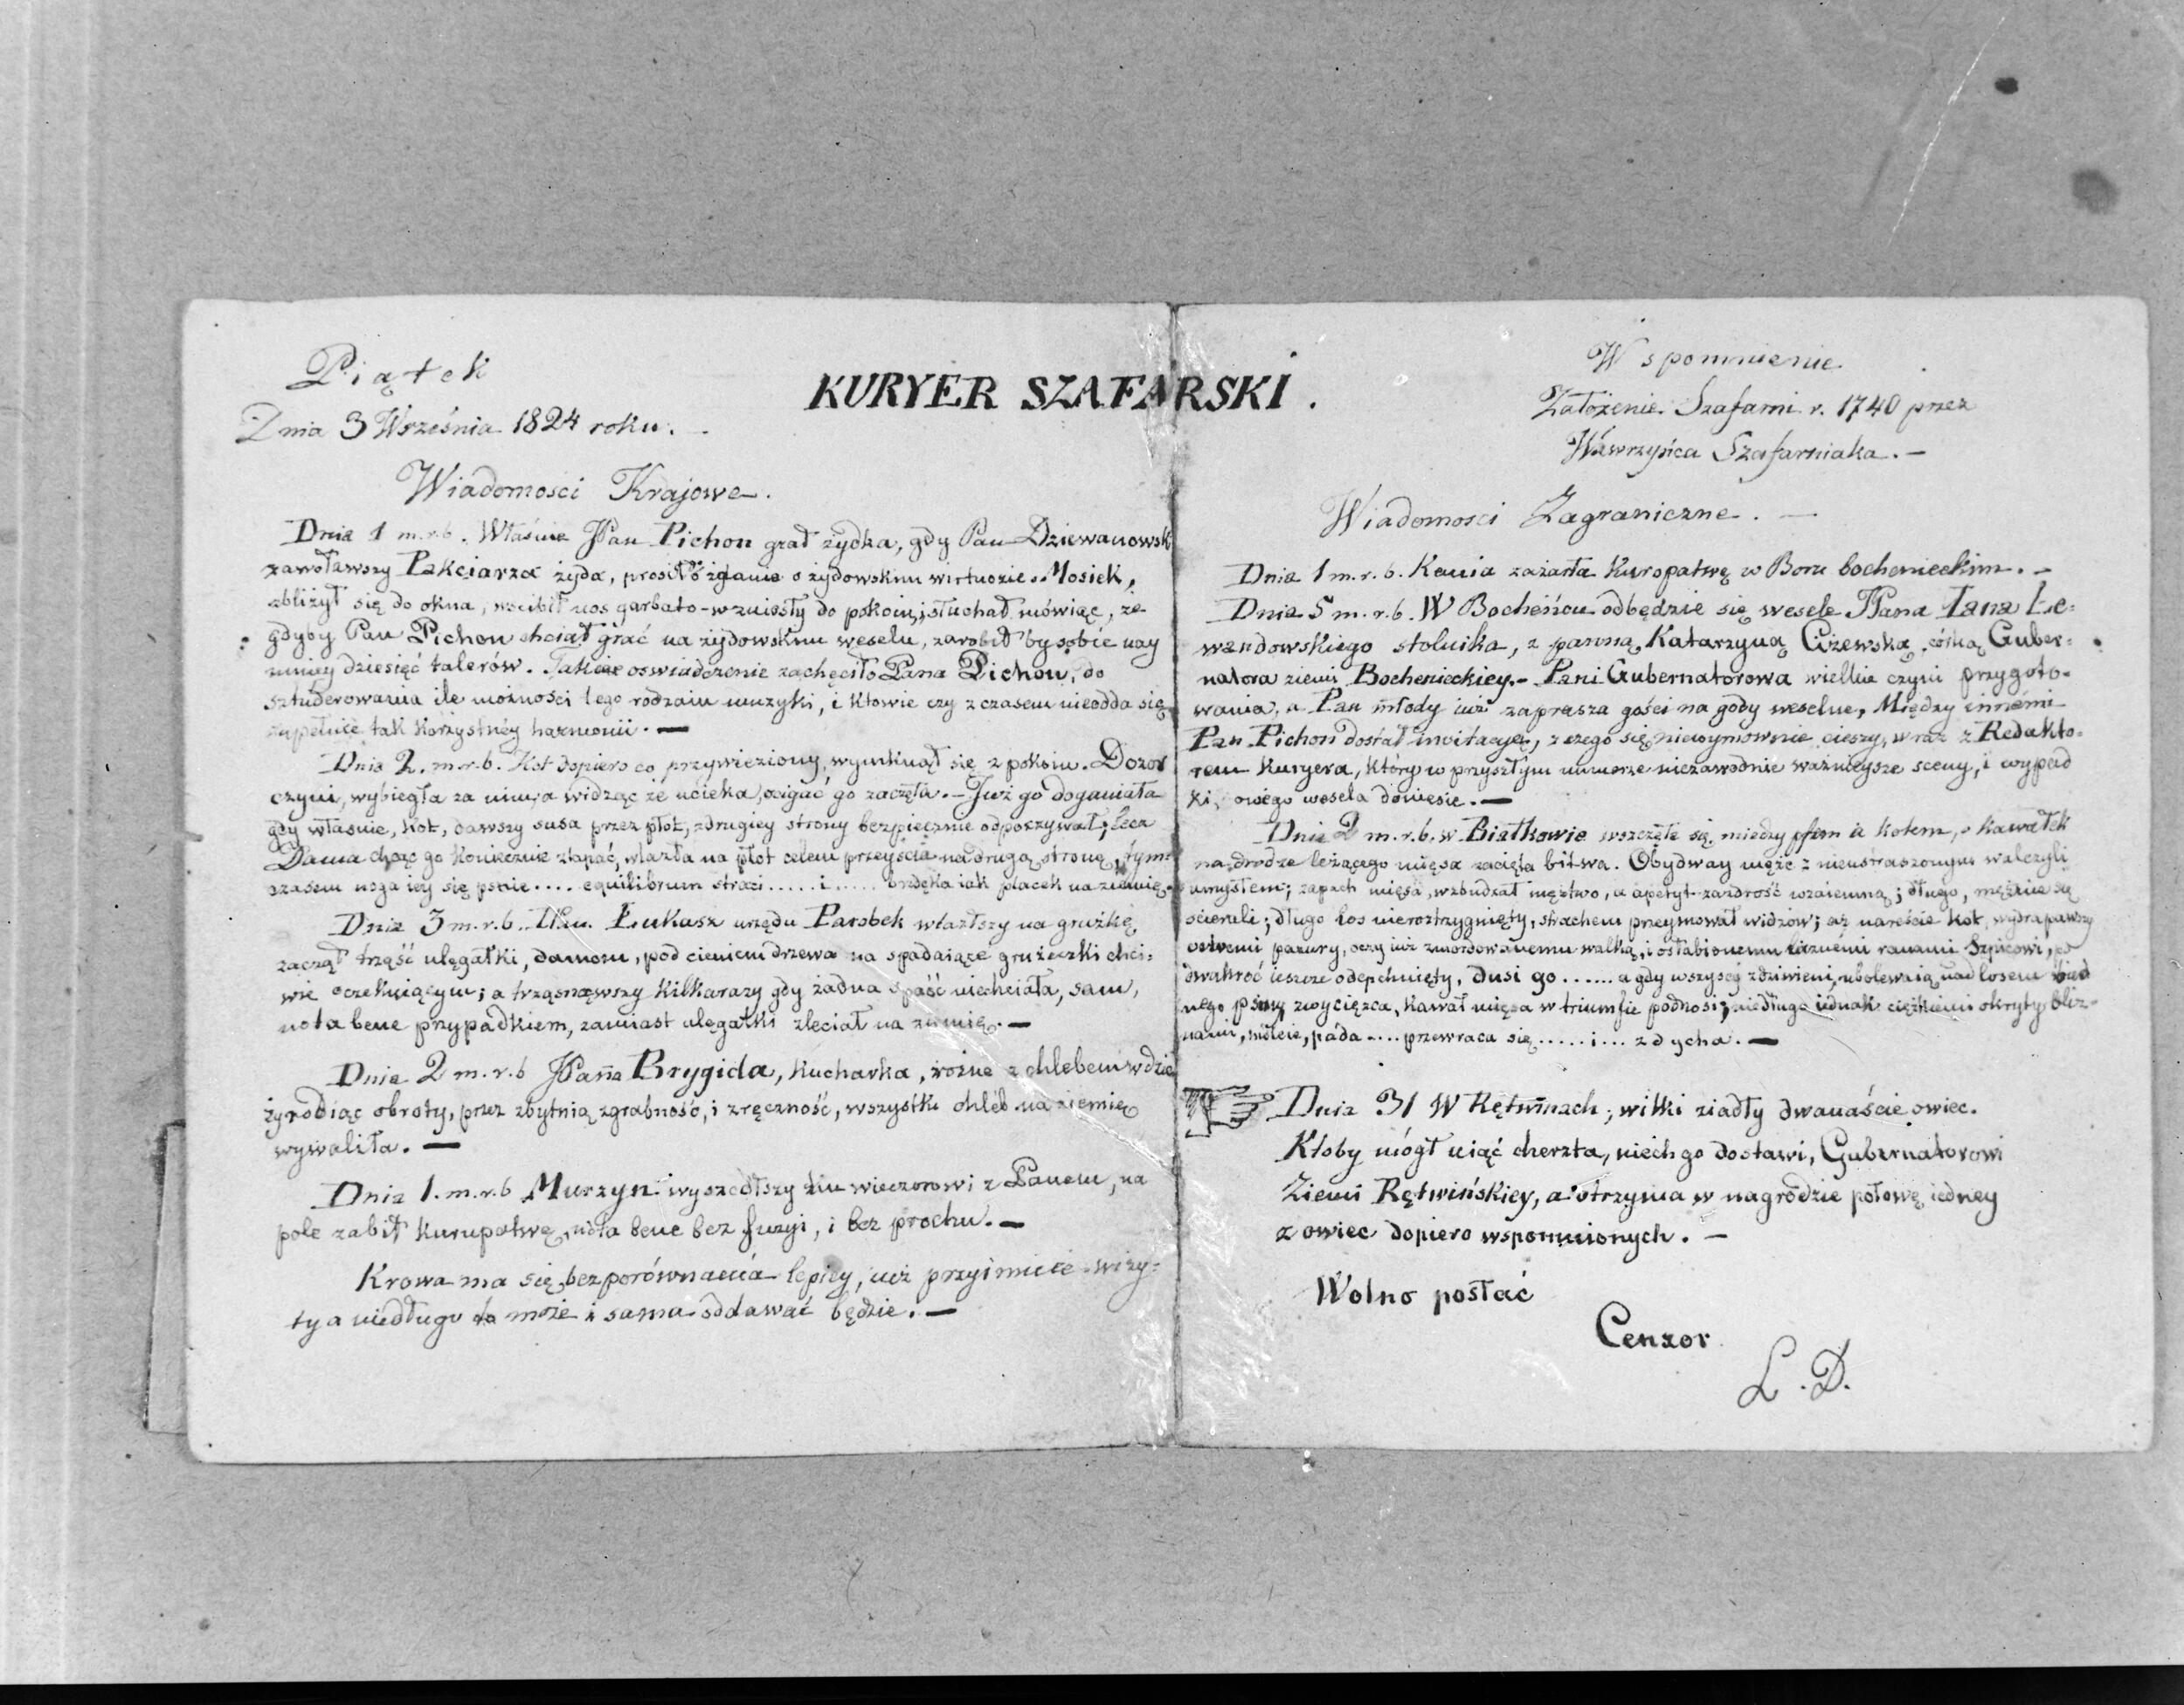 Piątek
Dnia 3 Września 1824 roku.
KURYER SZAFARSKI.
Wspomnienie
Założenie Szafarni r. 1740 przez
Wawrzyńca Szafarniaka. —
Wiadomości Krajowe.
Dnia 1 m.r.b. Właśnie JPan Pichon grał żydka, gdy Pan Dziewanowsk
zawoławszy Pakciarza żyda, prosił o zdanie o żydowskim wirtuozie. Mosiek,
zbliżył się do okna, wścibił nos garbato-wzniosły do pokoiu, i słuchał mówiąc, że
gdyby Pan Pichon chciał grać na żydowskim weselu, zarobił by sobie nay
mniey dziesięć talerów. Takie oswiadczenie zachęciło Pana Pichon, do
sztuderowania ile możności tego rodzaiu muzyki, i ktowie czy z czasem nieodda się
zupełnie tak korzystnéy harmonii. —
Dnia 2. m.r.b. Kot dopiero co przywieziony, wymknął się z pokoiu. Dozor
czyni, wybiegła za nim, a widząc że ucieka, ścigać go zaczęła. — Już go doganiała
gdy właśnie, kot, dawszy susa przez płot, z drugiey strony bezpiecznie odpoczywał; lecz
Dama chcąc go koniecznie złapać, wlazła na płot celem przeyścia na drugą stronę, tym
czasem noga iey się psnie.... equilibrum straci..... i..... brzdęka iak placek na ziemię.
Dnia 3 m.r.b. Łukasz urzędu Parobek wlazłszy na gruźkę
zaczął trząść ulęgałki, damom, pod cieniem drzewa na spadaiące gruźeczki chci-
wie oczekuiącym; a trząsnąwszy kilka razy gdy żadna spaść niechciała, sam,
nota bene przypadkiem, zamiast ulęgałki zleciał na ziemię. —
Dnia 2 m.r.b JPanna Brygida, kucharka, różne z chlebem w dzie
ży robiąc obroty, przez zbytnią zgrabność, i zręczność, wszystki chléb na ziemię
wywaliła. —
Dnia 1. m.r.b Murzyn wyszedłszy ku wieczorowi z Panem, na
pole zabił kuropatwę, nota bene bez fuzyi, i bez prochu. —
Krowa ma się bez porównania lepiey, już przyimuie wizy-
ty a niedługo to może i sama oddawać będzie. —
Wiadomości Zagraniczne. —
Dnia 1 m.r.b. Kania zażarła kuropatwę w Boru bochenieckim. —
Dnia 5 m.r.b. W Bocheńcu odbędzie się wesele JPana Iana Le-
wandowskiego stolnika, z panną Katarzyną Ciżewską, córką Guber-
natora ziemi Bochenieckiey. — Pani Gubernatorowa wielkie czyni przygoto-
wania, a Pan młody iuż zaprasza gości na gody weselne, Między innémi
Pan Pichon dostał invitacyę, z czego się niewymownie cieszy, wraz z Redakto-
rem Kuryera, który w przyszłym numerze niezawodnie ważnieysze sceny, i wypad
ki, owégo wesela doniesie. —
Dnia 2 m.r.b. w Białkowie wszczęła się między psem a kotem, o kawałek
na drodze leżącego mięsa zacięta bitwa. Obydway męże z nieustraszonym walczyli
umysłem; zapach mięsa, wzbudzał męztwo, a apetyt zazdrość wzaiemną; długo, mężnie się
ścierali; długo los nieroztrzygnięty, strachem przeymował widzów; aż nareście kot wydrapawszy
ostremi pazury, oczy iuż zmordowanemu walką, i osłabionemu licznémi ranami Szpicowi,
dwakroć ieszcze odepchnięty, dusi go...... a gdy wszyscy zdziwieni, ubolewaią nad losem bied
nego psiny zwycięzca, kawał mięsa w triumfie podnosi; niedługo iednak ciężkiemi okryty bliz-
nami, mdleie, páda.... przewraca się..... i... zdycha. —
Dnia 31 W Rętwinach, wilki ziadły dwanaście owiec.
Ktoby mógł uiąć cherzta, niech go dostawi, Gubernatorowi
Ziemi Rętwińskiey, a otrzyma w nagrodzie połowę iedney
z owiec dopiero wspomnionych. —
Wolno posłać
Cenzor
L. D.